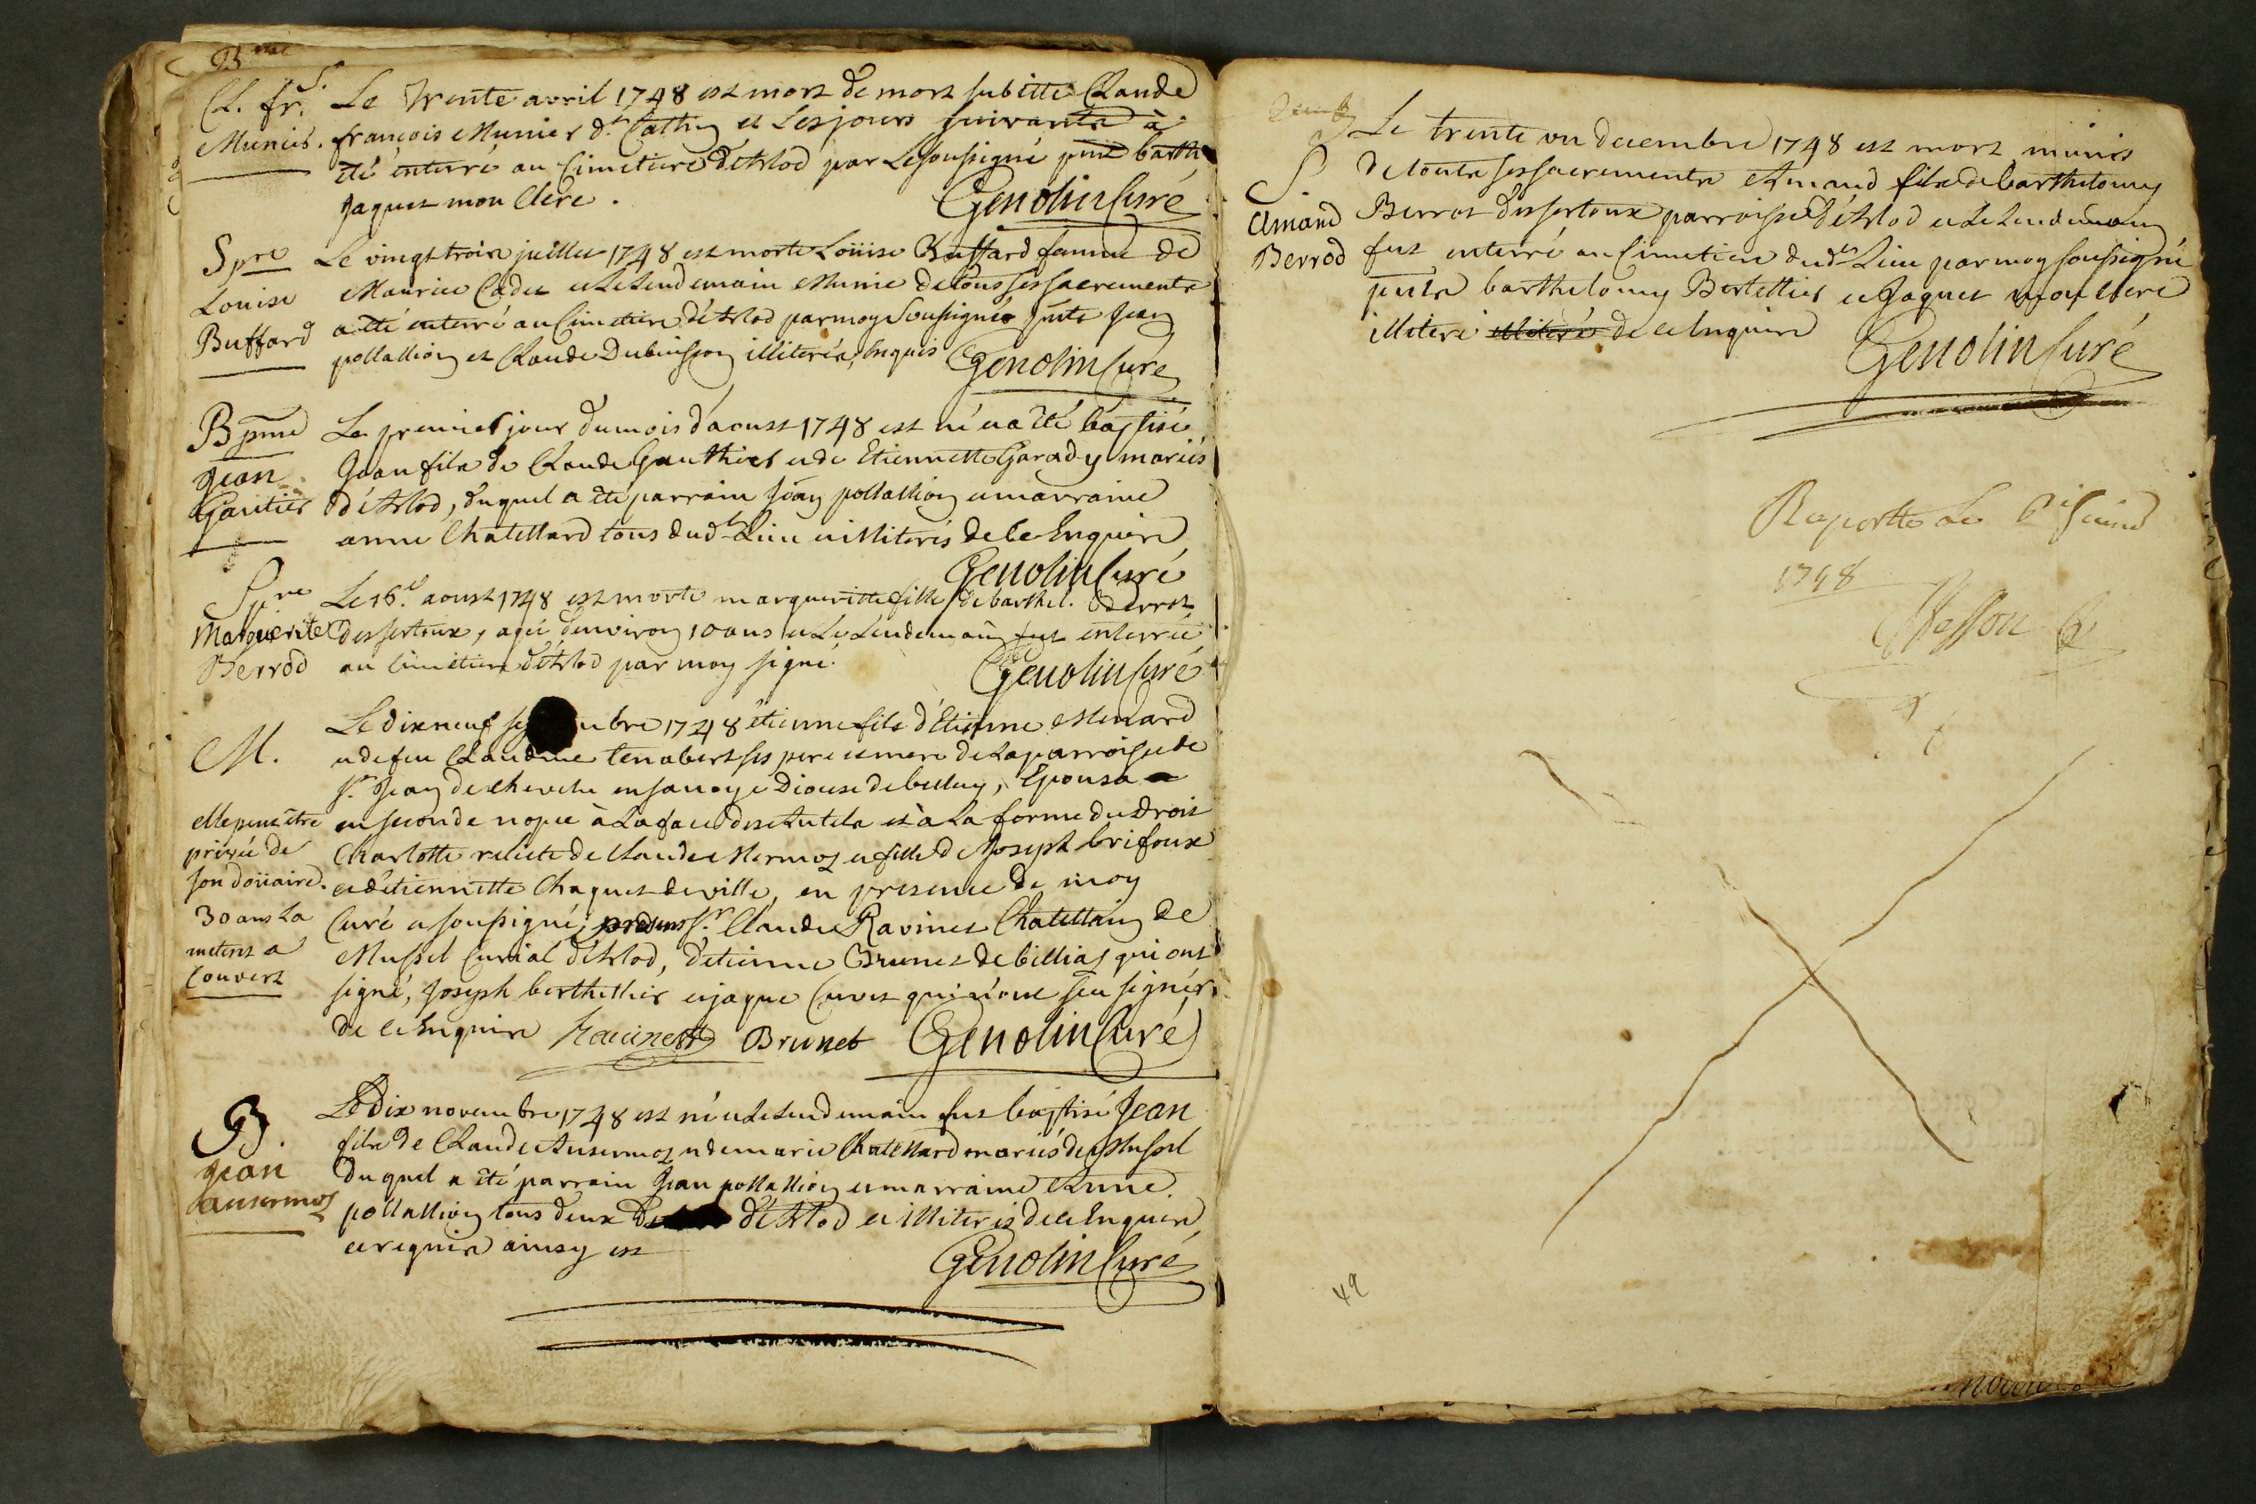 Cl. fr.
Munier.
Le trente avril 1748 est mort de mort subitte Claude
francois Munier d.t Cathy et les jours suivants à
été enterré au Cimetiere d'Arlod par le soussigné pnt barth
Jaquet mon Clerc.
Genolin Curé
Spre
Louise
Buffard
Le vingt trois juillet 1748 est morte Loüise Buffard femme de
Maurice Cadet et le lendemain Munie de tous ses sacrements
a été enterré au Cimetiere d'Arlod par moy soussignée pnts Jean
pollallion et Claude Dubuisson illiterés, enquis
Genolin Curé
Bpme
Jean
Gautier
Le premier jour du mois d'aoust 1748 est né et a été baptisée
Jean fils de Claude Gauthier et de Etiennette Garady mariés
d'Arlod, duquel a été parrain Jean pollallion et marraine
anne Chatellard tous dud.t Lieu et illiterés de ce Enquire
Genolin Curé
Spre
Marguerite
Berrod
Le 16.e aoust 1748 est morte margueritte fille de barthel. Berrot
des sertoux, agée d'environ 10 ans et le lendemain fut enterrée
au cimetiere d'Arlod par moy signé.
Genolin Curé
M.
elle peut être
privée de
son doüaire.
30 ans la
mettent a
Couvert
Le dix neuf se mbre 1748 étienne fils d'Etienne Menard
et de feu Claudine tenabert ses pere et mere de la parroisse de
s.t Jean de chevelu en savoye Diocese de belley, Epousa
en seconde nopce à la face des Autels et à la forme du Droit
Charlotte relicte de Claude Mermoz et fille de Joseph brifoux
et d'étiennette Chaquet de ville, en presence de moy
Curé et soussigné, presens s.r Claude Ravinet Chatellain de
Mussel Curial d'Arlod, d'étienne Brunet de billias qui ont
signé, Joseph berthellier et jaque Curet qui n'ont sçu signer
de ce Enquire Ravinet Brunet Genolin Curé
B.
Jean
ansermoz
Le Dix novembre 1748 est né et le lendemain fut baptisé Jean
fils de Claude Ansermoz et de marie Chatellard mariés de Mussel
duquel a été parrain Jean pollallion et marraine Anne
pollallion tous deux d'Arlod et illiteris de ce Enquere
et require ainsy est
Genolin Curé
S
Amand
Berrod
Le trente un decembre 1748 est mort munis
de touts ses sacrements Amand fils de barthelemy
Berrot des sertoux parroisse d'Arlod et le lendemain
fut enterré au Cimetiere dud.t Lieu par moy soussigné
pnts barthelemy Bertellier et Jaquet mon clerc
illiteré illiteré de ce Enquire
Genolin Curé
Raportte Le
1748
49